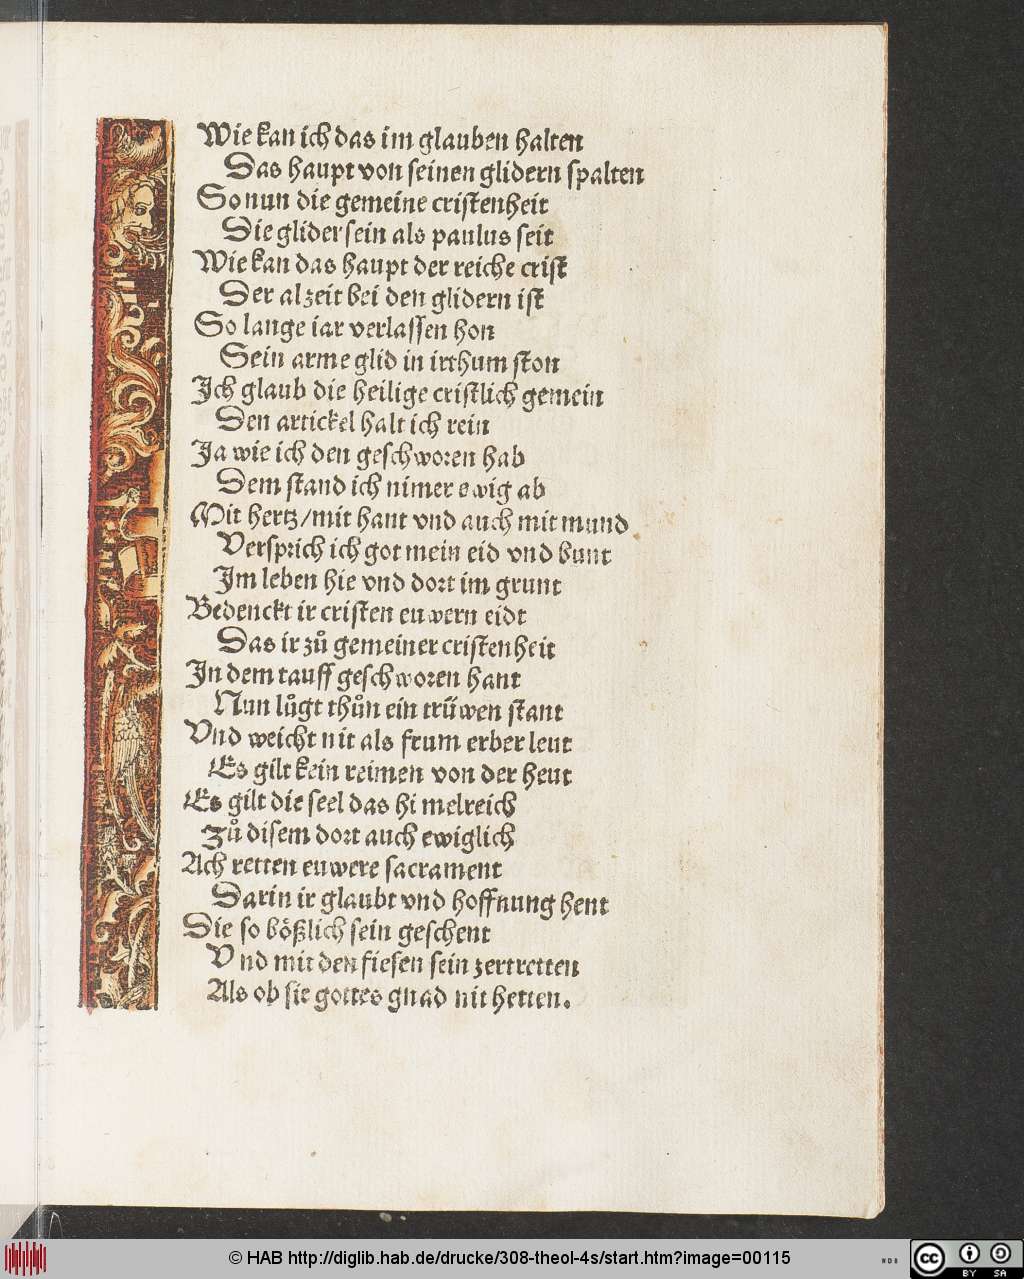 Wie kan ich das im glauben halten
Das haupt von seinen glidern spalten
So nun die gemeine cristenheit
Die glider sein als paulus seit
Wie kan das haupt der reiche crist
Der alzeit bei den glidern ist
So lange iar verlassen hon
Sein arme glid in irthum ston
Ich glaub die heilige cristlich gemein
Den artickel halt ich rein
Ja wie ich den geschworen hab
Dem stand ich nimer ewig ab
Mit hertz/mit hant vnd auch mit mund
Versprich ich got mein eid vnd bunt
Im leben hie vnd dort im grunt
Bedenckt ir cristen euwern eidt
Das ir zuͦ gemeiner cristenheit
In dem tauff geschworen hant
Nun luͦgt thuͦn ein trüwen stant
Vnd weicht nit als frum erber leut
Es gilt kein reimen von der heut
Es gilt die seel das hi melreich
Zuͦ disem dort auch ewiglich
Ach retten euwere sacrament
Darin ir glaubt vnd hoffnung hent
Die so bößlich sein geschent
Vnd mit den fiesen sein zertretten
Als ob sie gottes gnad nit hetten.
© HAB http://diglib.hab.de/drucke/308-theol-4s/start.htm?image=00115
WDB
cc BY SA